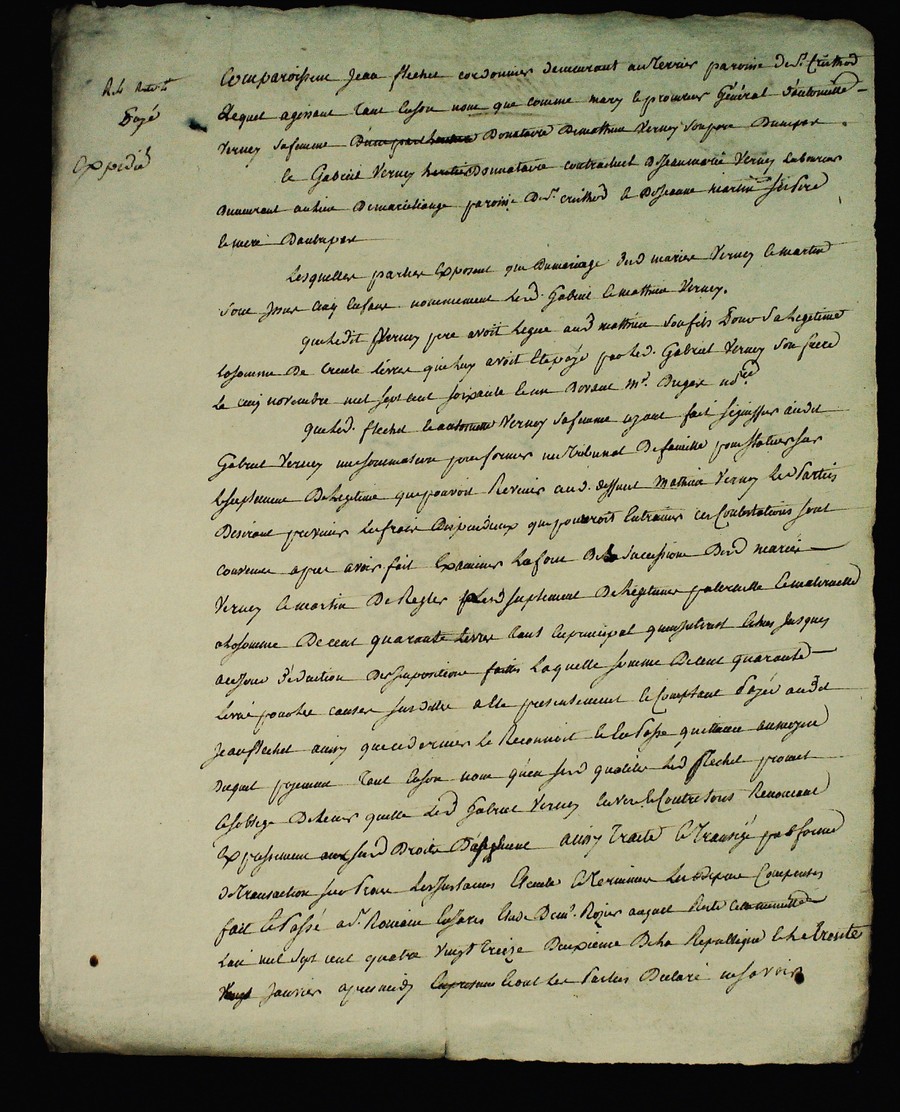 Payé
Expedié
Comparoissent Jean flechet cordonnier demeurant au terrier paroisse de St. Cristhod
Lequel agissant tant en son nom que comme mary et procureur Général d'antoinette
Verney sa femme Donataire de mathieu Verney son pere d'une part.
Et Gabriel Verney heritier Donnataire contractuel de Jean marie Verney Laboureur
Demeurant au lieu de paroisse de St. cristhod et de Jeanne martin ses pere
et mere D'autre part
Lesquelles parties Exposent que du mariage desd mariés Verney et martin
Sont Issus Cinq Enfans nommement led. Gabriel et mathieu Verney.
que ledit Verney pere avoit Legué aud mathieu son fils pour Sa Legitime
la somme De trente Livres que luy avoit Eté payé par led. Gabriel Verney Son frere
Le cinq novembre mil sept cent soixante et un Devant Me. Dugas nre.
que led. flechet et antoinette Verney sa femme ayant fait signiffier audit
Gabriel Verney une sommation pour former un tribunal De famille pour statuer sur
le suplement De Legitime que pouvoit Revenir aud. deffunt Mathieu Verney Les Parties
Desirant prevenir Les frais Dispendieux que pourroit Entrainer ces Contestations sont
convenus apres avoir fait Examiner La force De la succession Desd mariés
Verney et martin De Regler led suplement De Legitime paternelle et maternelle
a la somme De cent quarante Livres tant En principal qu'interest Echus Jusques
a ce Jour Déduction Des impositions faittes Laquelle somme De cent quarante
Livres pour les causes susdittes a Eté presentement et Comptant Payée audit
Jean flechet ainsy que ce dernier Le Reconnoit Et En Passe quittance au moyen
Duquel payement tant En son nom qu'en sesd qualités Led flechet promet
et s'oblige De tenir quitte led Gabriel Verney Envers et Contre tous Renoncant
Expressement aux susd Droits ainsy traité et transigé par forme
de transaction sur Procé Les Instances Eteinte et terminée Les depens Compensés
fait et Passé a St. Romain En Jares Etude De Me. Rozier auquel Reste cette minutte
L'an mil sept cent quatre Vingt treize Deuxieme De La Republique et Le trente
Janvier apres midy Et ont Les Parties Declaré ne savoir